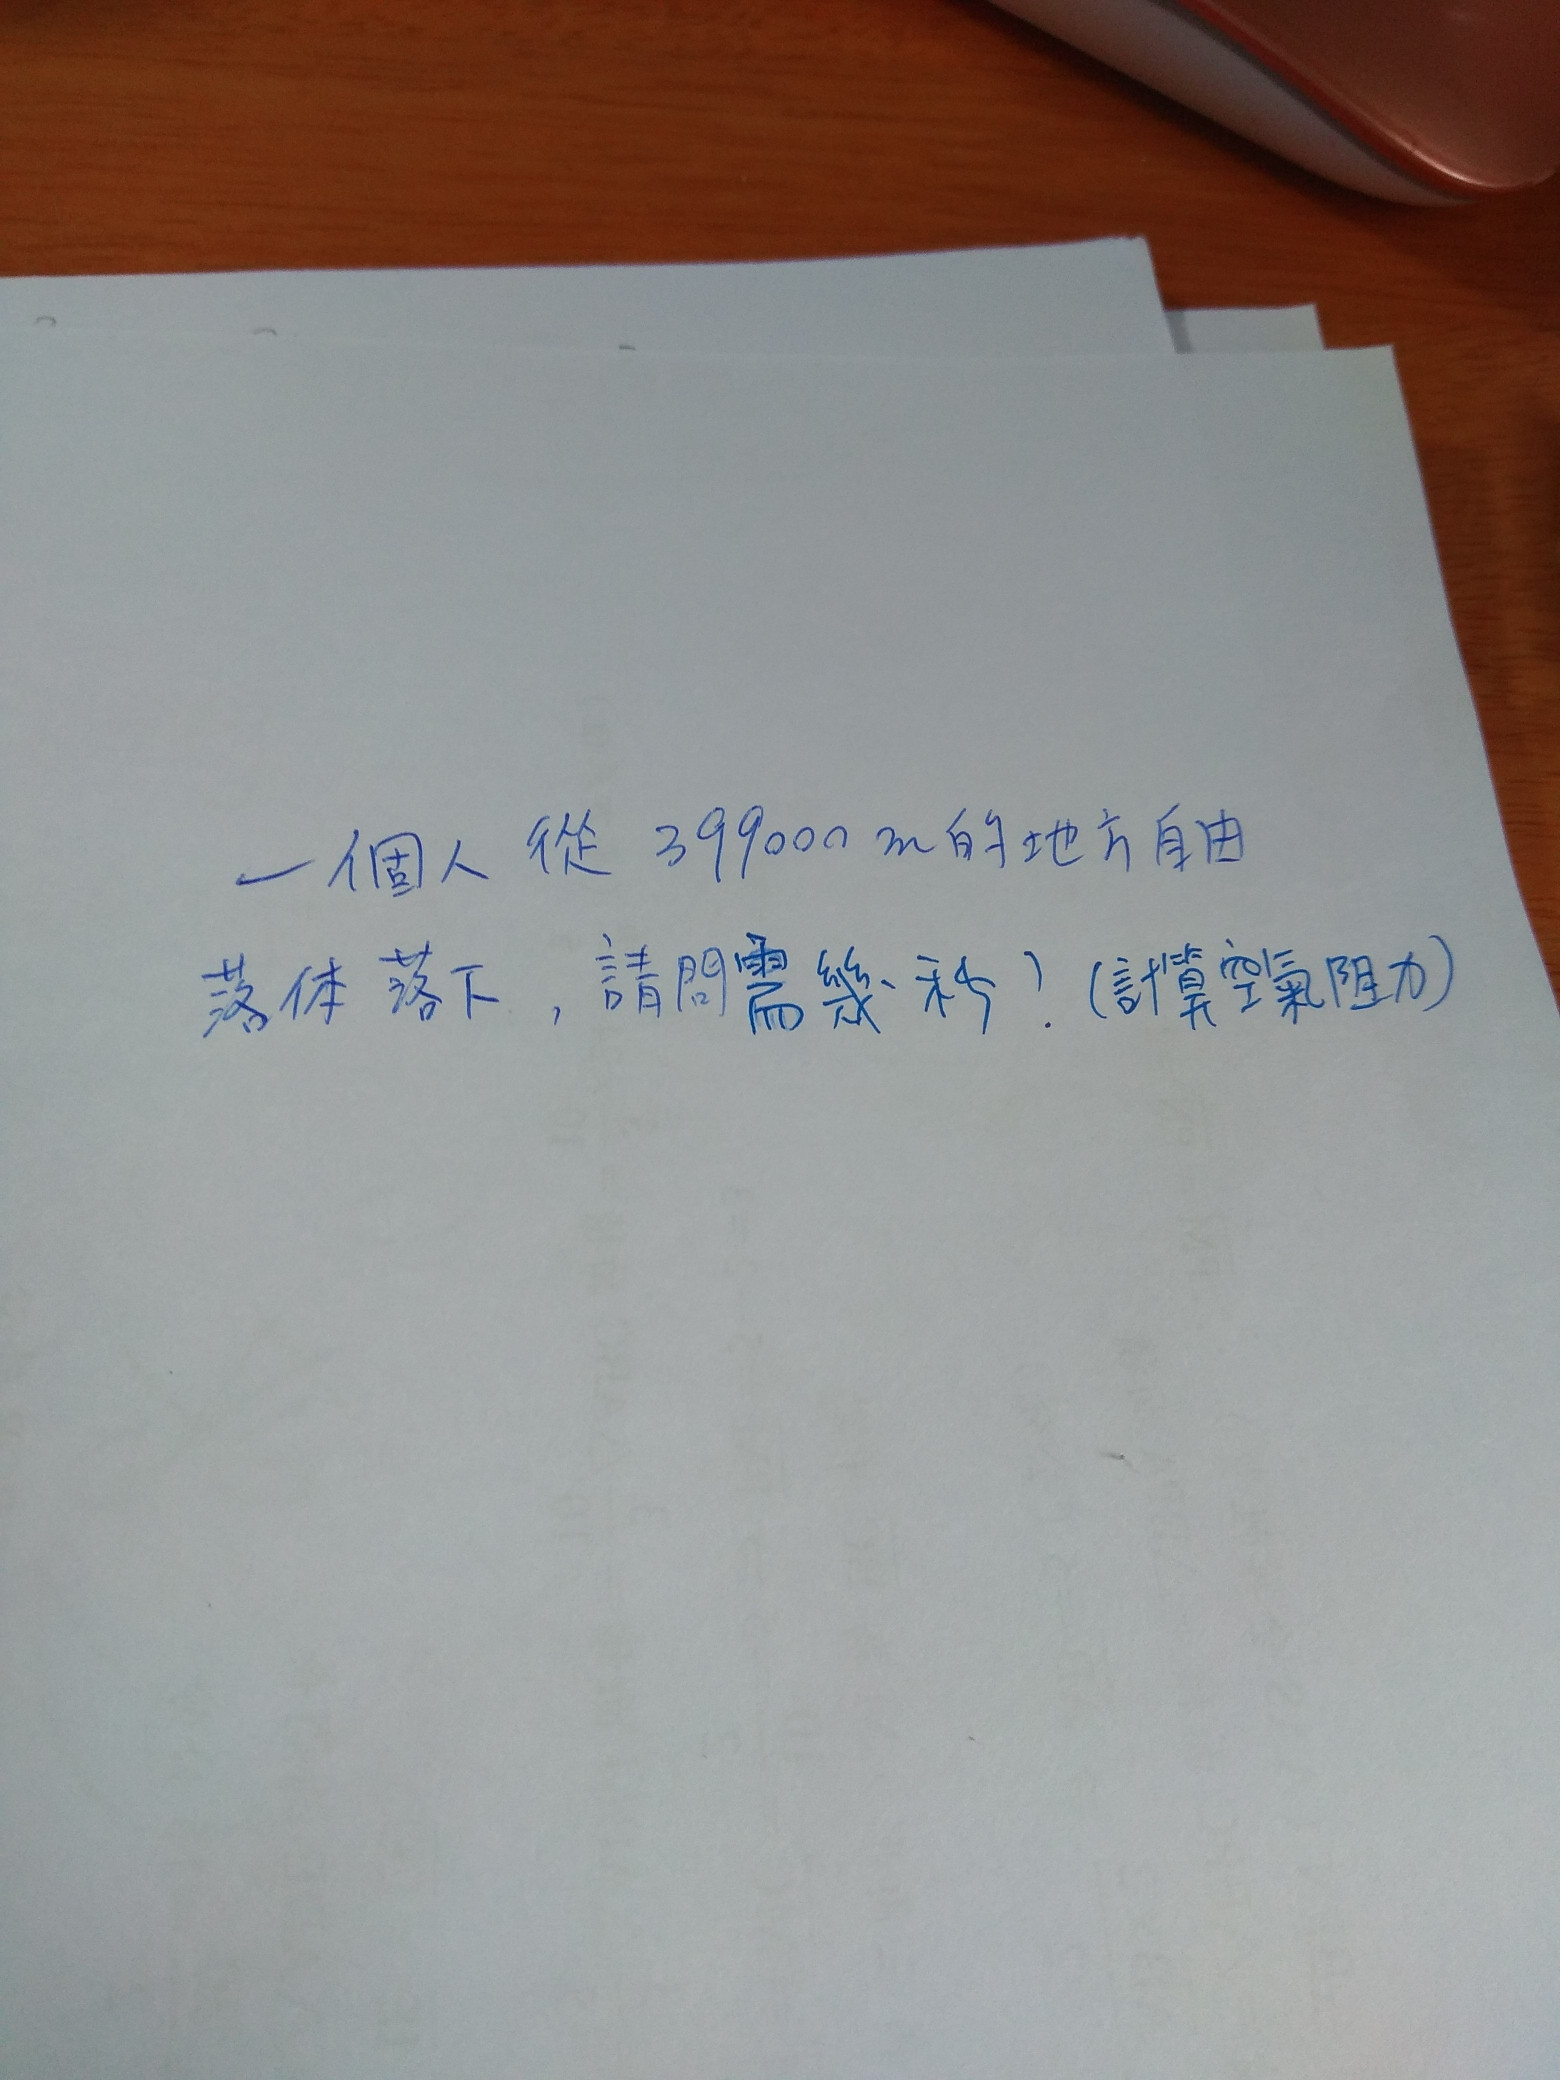 一個人從399000m的地方自由
落体落下，請問需幾秒？(計算空氣阻力)